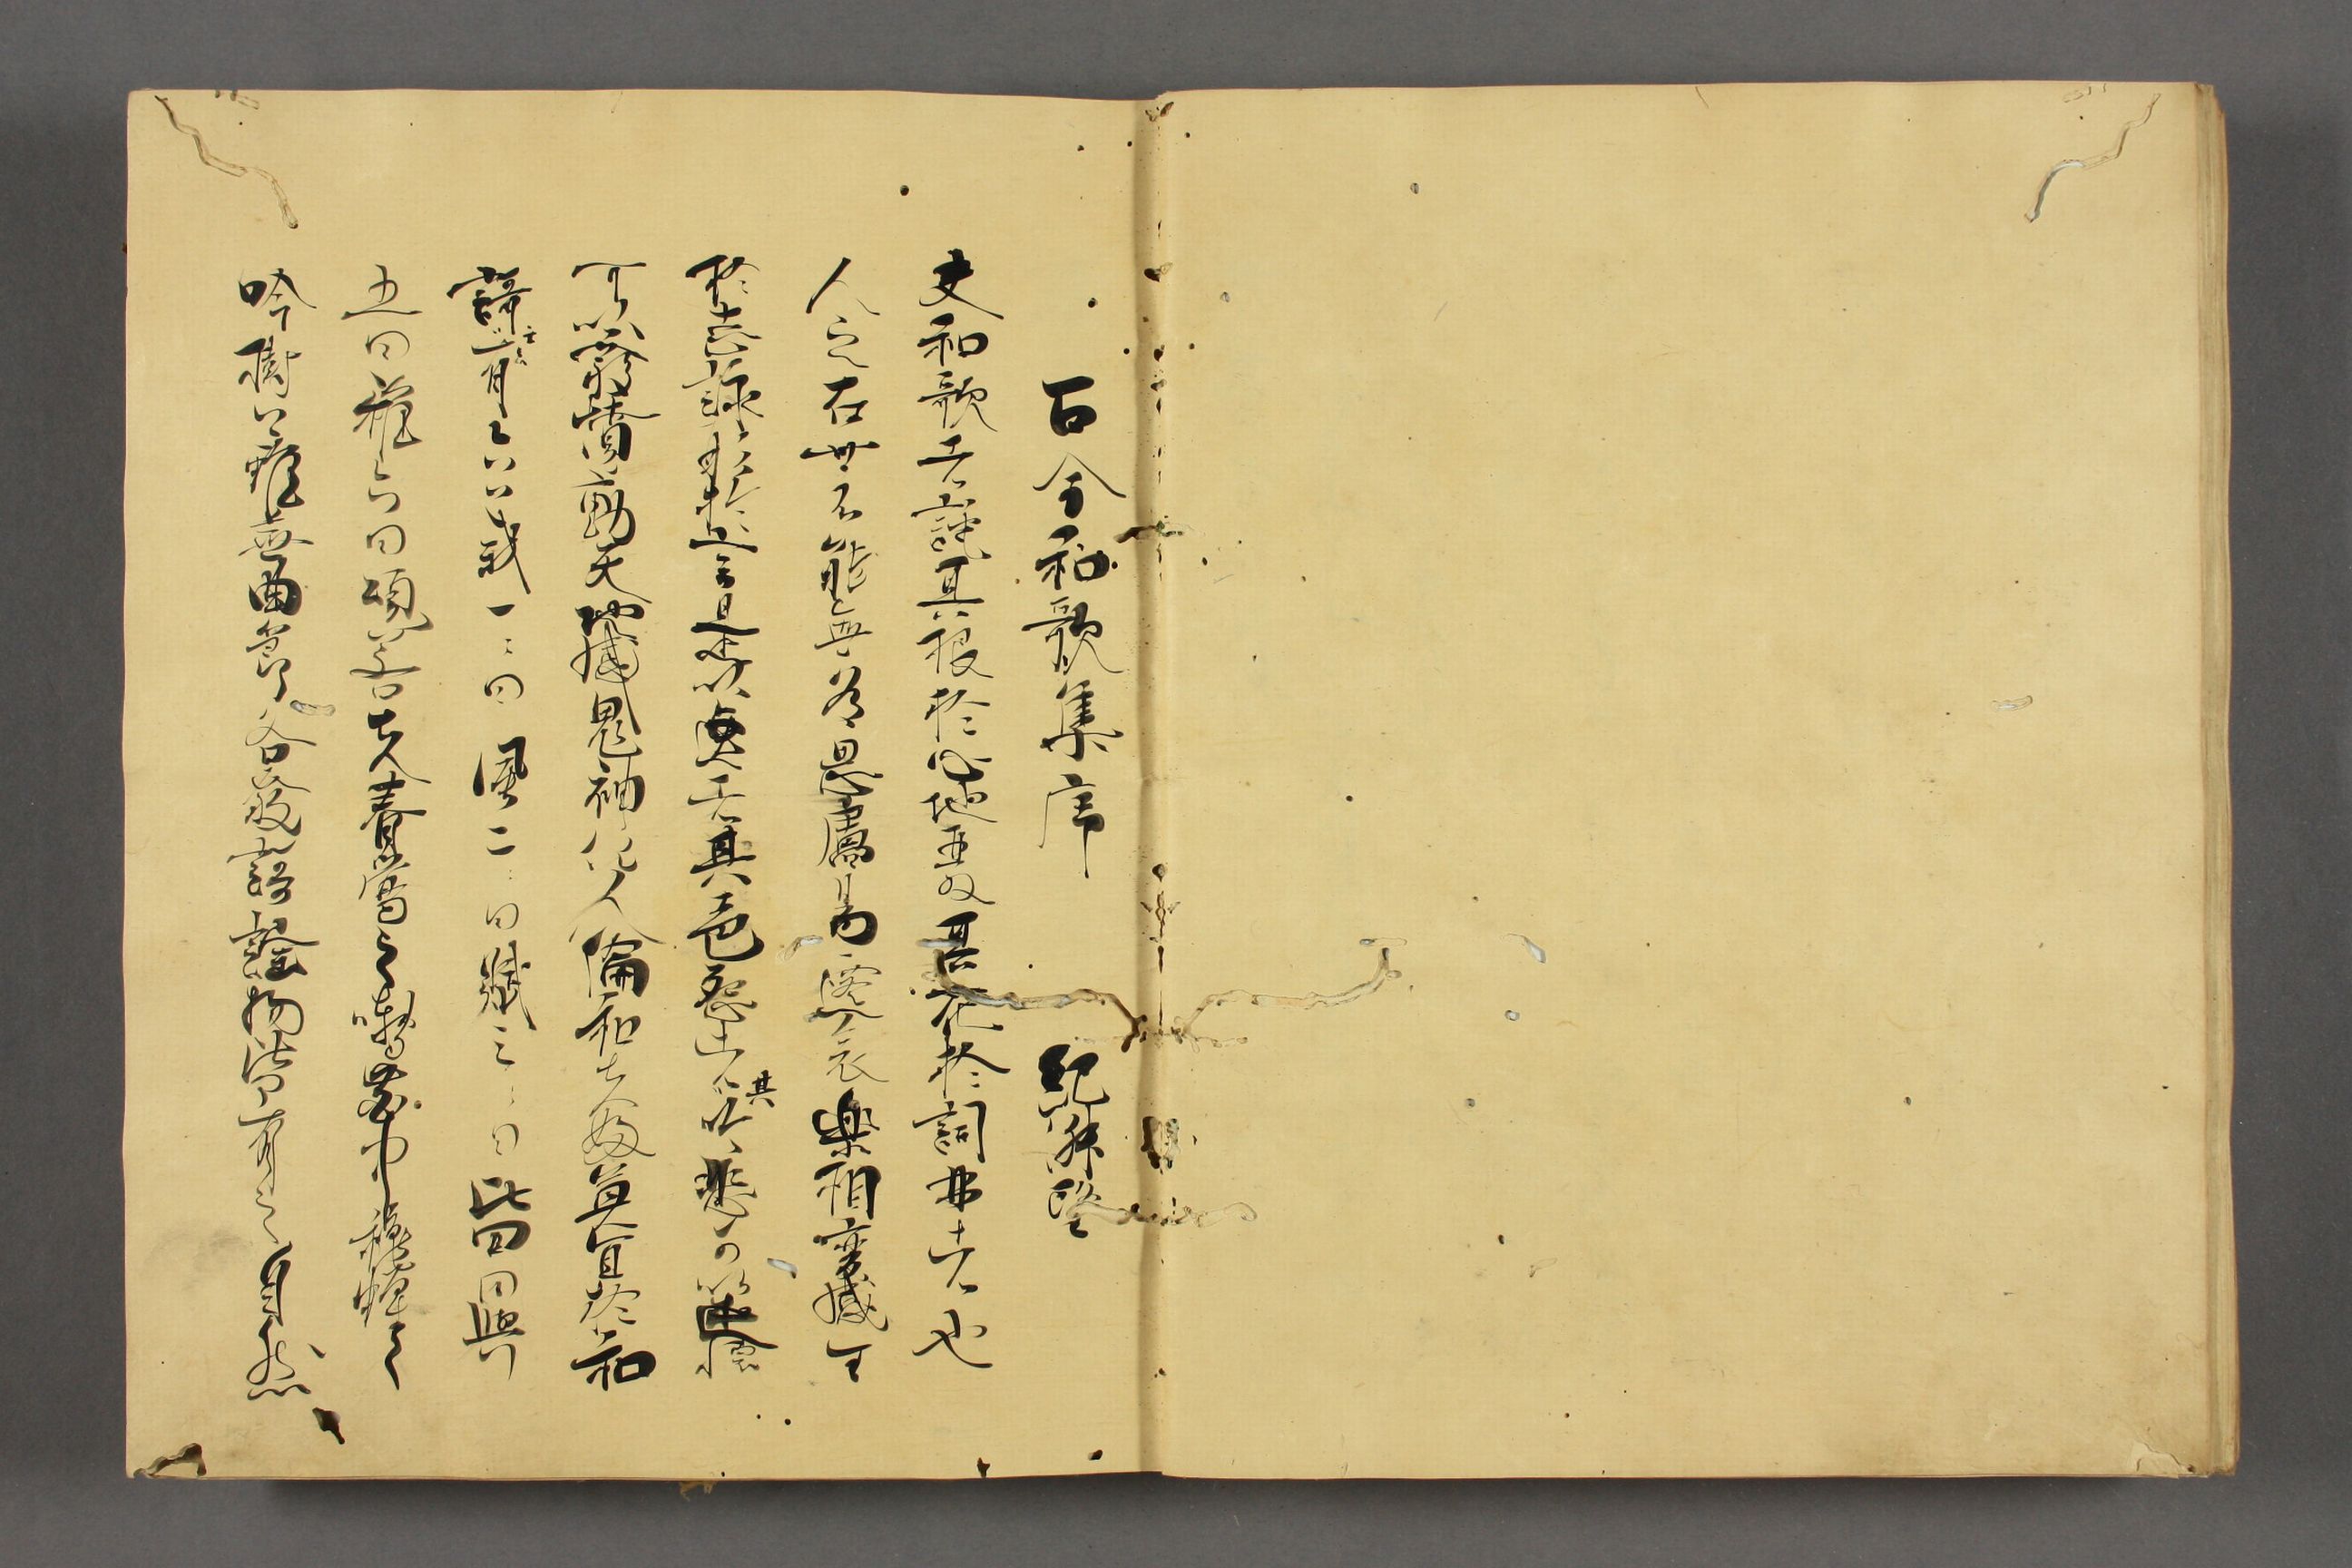 古今和歌集序　紀淑望
夫和歌者託其根於心地発其花於詞林者也
人之在世不能無為思慮易遷哀楽相変感生
於志詠形於言是以逸者其色怨者其吟悲可以述懐
可以發憤動天地感鬼神化人倫和夫婦莫宜於和
謌有六義一曰風二曰賦三曰比四曰興
五曰雅六曰頌若夫春鶯之囀花中秋蝉之
吟樹上雖無曲節各發謌謡物皆有之自然